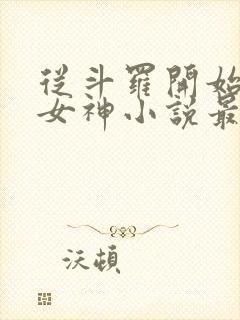 從斗羅開始
女神小說最
沃頓